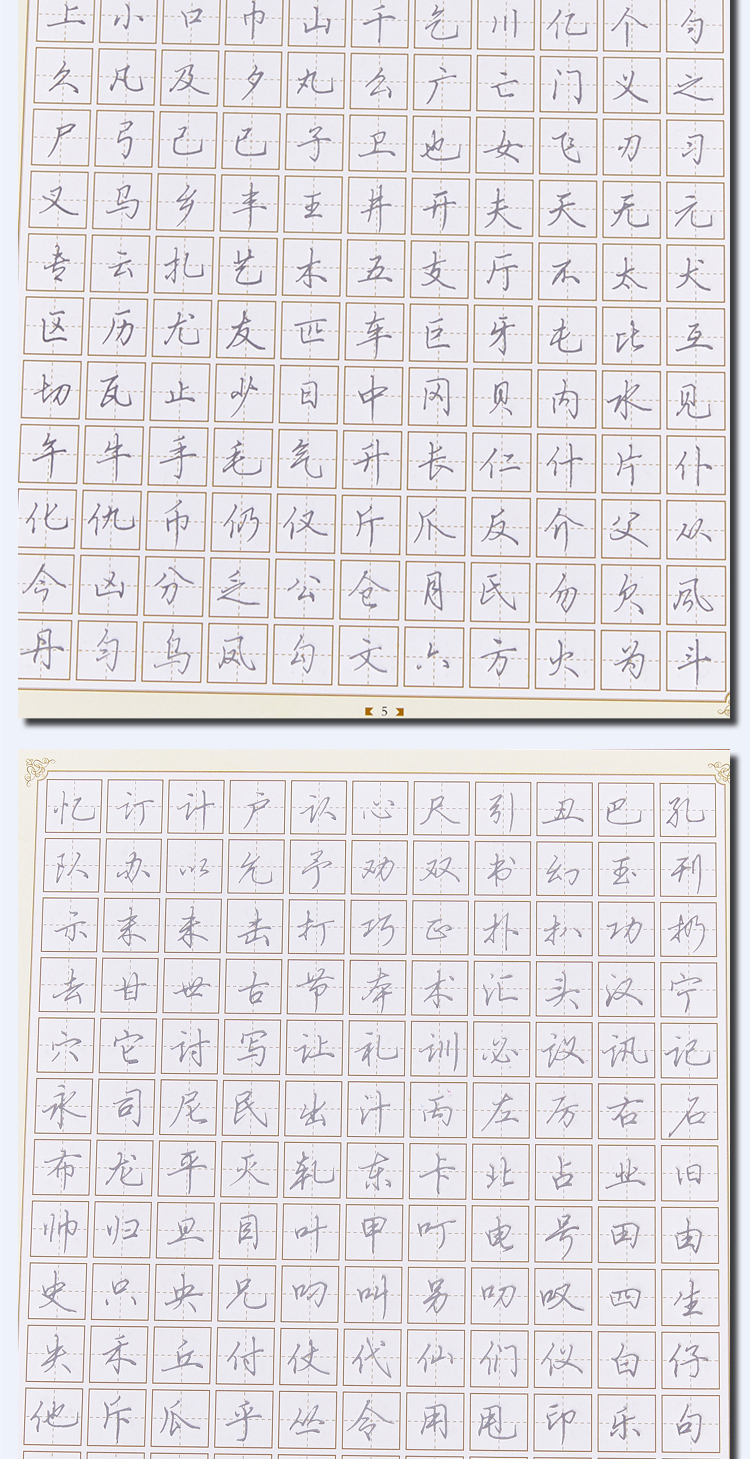 上小口巾山千乞川亿个勺
久凡及夕丸么广亡门义之
尸弓己已子卫也女飞刃习
叉马乡丰王井开夫天无元
云扎艺木五支厅不太犬
区历尤友匹车巨牙屯比互
切瓦止少日中冈贝内水见
午牛手毛气升长仁什片仆
化仇币仍仅斤爪反介父从
今凶分乏公仓月氏勿欠风
丹匀乌凤勾文六方火为斗
5
忆订计户认心尺引丑巴孔
队办以允予劝双书幻玉刊
示未击打巧正扑扒功扔
去甘世古节本术汇头汉宁
穴它讨写让礼训必议讯记
永司尼民出汁丙左厉右石
布龙平灭轧东卡北占业旧
帅归旦目叶甲叮电号田由
史只央兄叼叫另叨叹四生
失禾丘付仗代仙们仪白仔
他斥瓜乎丛令用甩印乐句